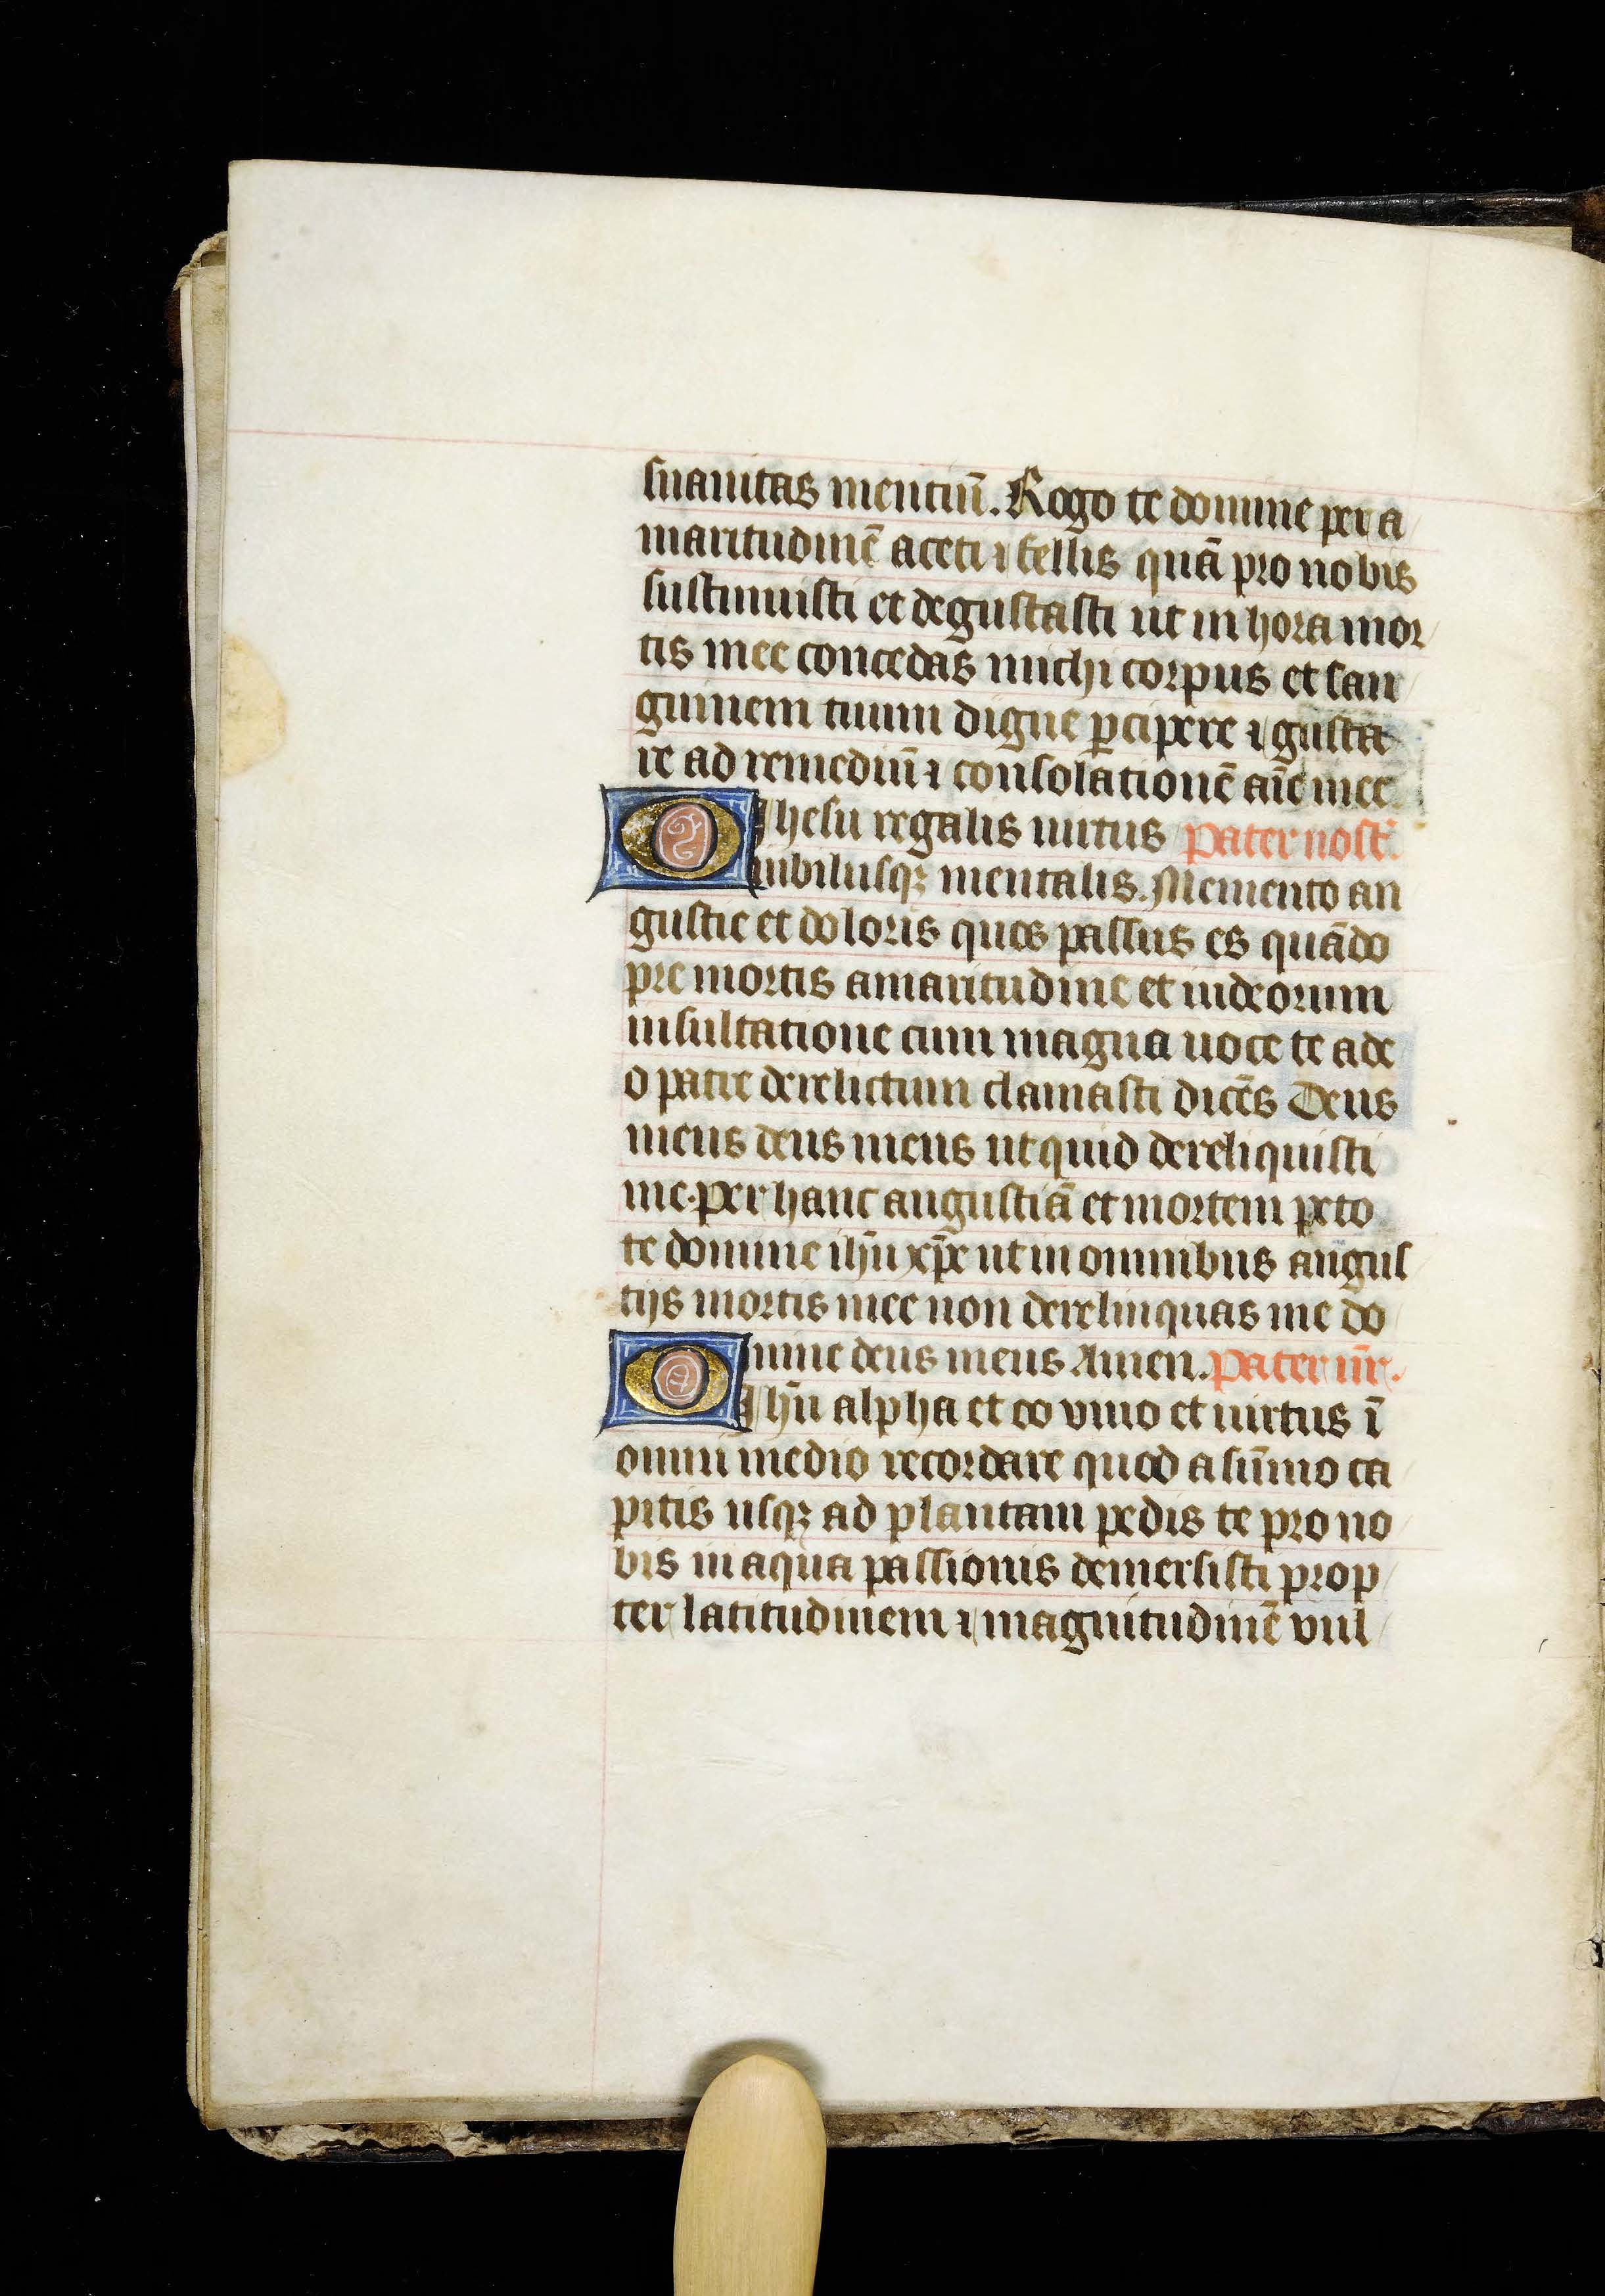 suauitas mentiū. Rogo te domine per a
maritudinē aceti ⁊ fellis quā pro nobis
sustinuisti et degustasti ut in hora mor
tis mee concedas michi corpus et san
guinem tuum digne ꝑcipere ⁊ gusta
re ad remediū ⁊ consolationē aīe mee
O Ihesu regalis uirtus Pater nost̄.
iubilusqꝫ mentalis. Memento an
gustie et doloris quos passus es quādo
pre mortis amaritudine et iudeorum
insultatione cum magna uoce te a de
o patre derelictum clamasti dicēs Deus
meus deus meus ut quid dereliquisti
me. per hanc angustiā et mortem peto
te domine ihū xp̄e ut in omnibus angus
tijs mortis mee non derelinquas me do
mine deus meus Amen. Pater nr̄.
O Ihū alpha et co viuo et uirtus ī
omni medio recordare quod a sūmo ca
pitis usqꝫ ad plantam pedis te pro no
bis in aqua passionis demersisti prop
ter latitudinem ⁊ magnitudinē vul